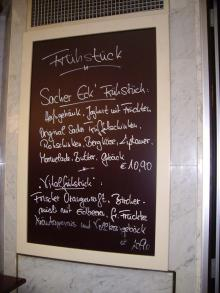 Frühstück
Sacher Eck' Frühstück:
Heißgetränk, Joghurt mit Früchten,
Original Sacher
Rohschinken, Bergkäse, Liptauer,
Marmelade, Butter, Gebäck
€ 10,90
Vitalfrühstück:
Frischer Orangensaft, Bircher-
müsli mit Erdbeeren, fr. Früchte
Kräutergervais und Vollkorngebäck
€